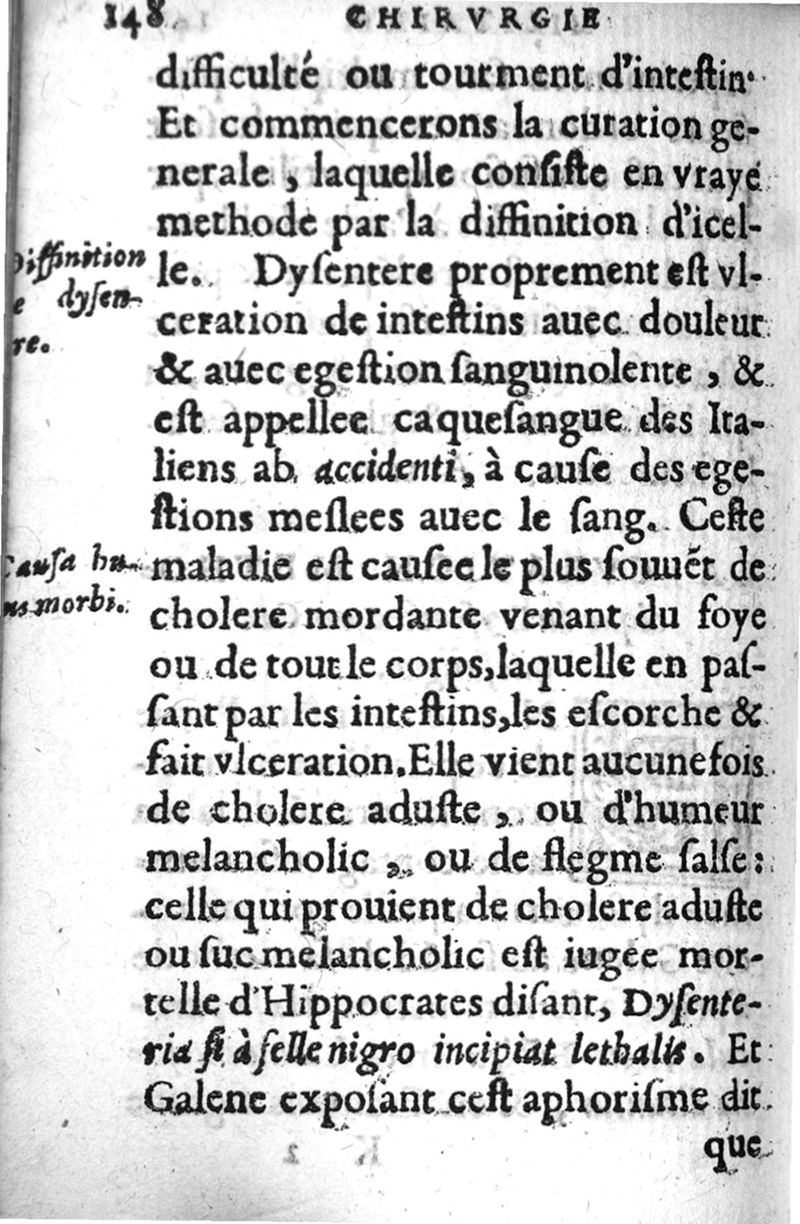 148 CHIRVRGIE
difficulté ou tourment d'inteſtin.
Et commencerons la curation ge-
nerale, laquelle conſiſte en vraye
methode par la diffinition d'icel-
le. Dyſentere proprement eſt vl-
ceration de inteſtins auec douleur
& auec egeſtion ſanguinolente, &
eſt appellee caqueſangue des Ita-
liens ab accidenti, à cauſe des ege-
ſtions meſlees auec le ſang. Ceſte
maladie eſt cauſee le plus ſouuẽt de
cholere mordante venant du foye
ou de tout le corps, laquelle en paſ-
ſant par les inteſtins, les eſcorche &
fait vlceration. Elle vient aucunefois
de cholere aduſte, ou d'humeur
melancholic, ou de flegme ſalſe:
celle qui prouient de cholere aduſte
ou ſuc melancholic eſt iugee mor-
telle d'Hippocrates diſant, Dyſente-
ria ſi à felle nigro incipiat lethalis. Et
Galene expoſant ceſt aphoriſme dit
que
Diffinition
e dyſen-
re.
Cauſa hu-
us morbi.